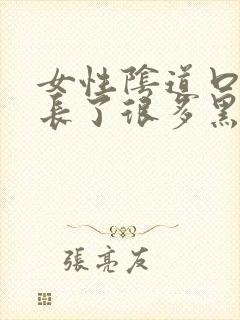 女性陰道口
長了很多黑
張亮友